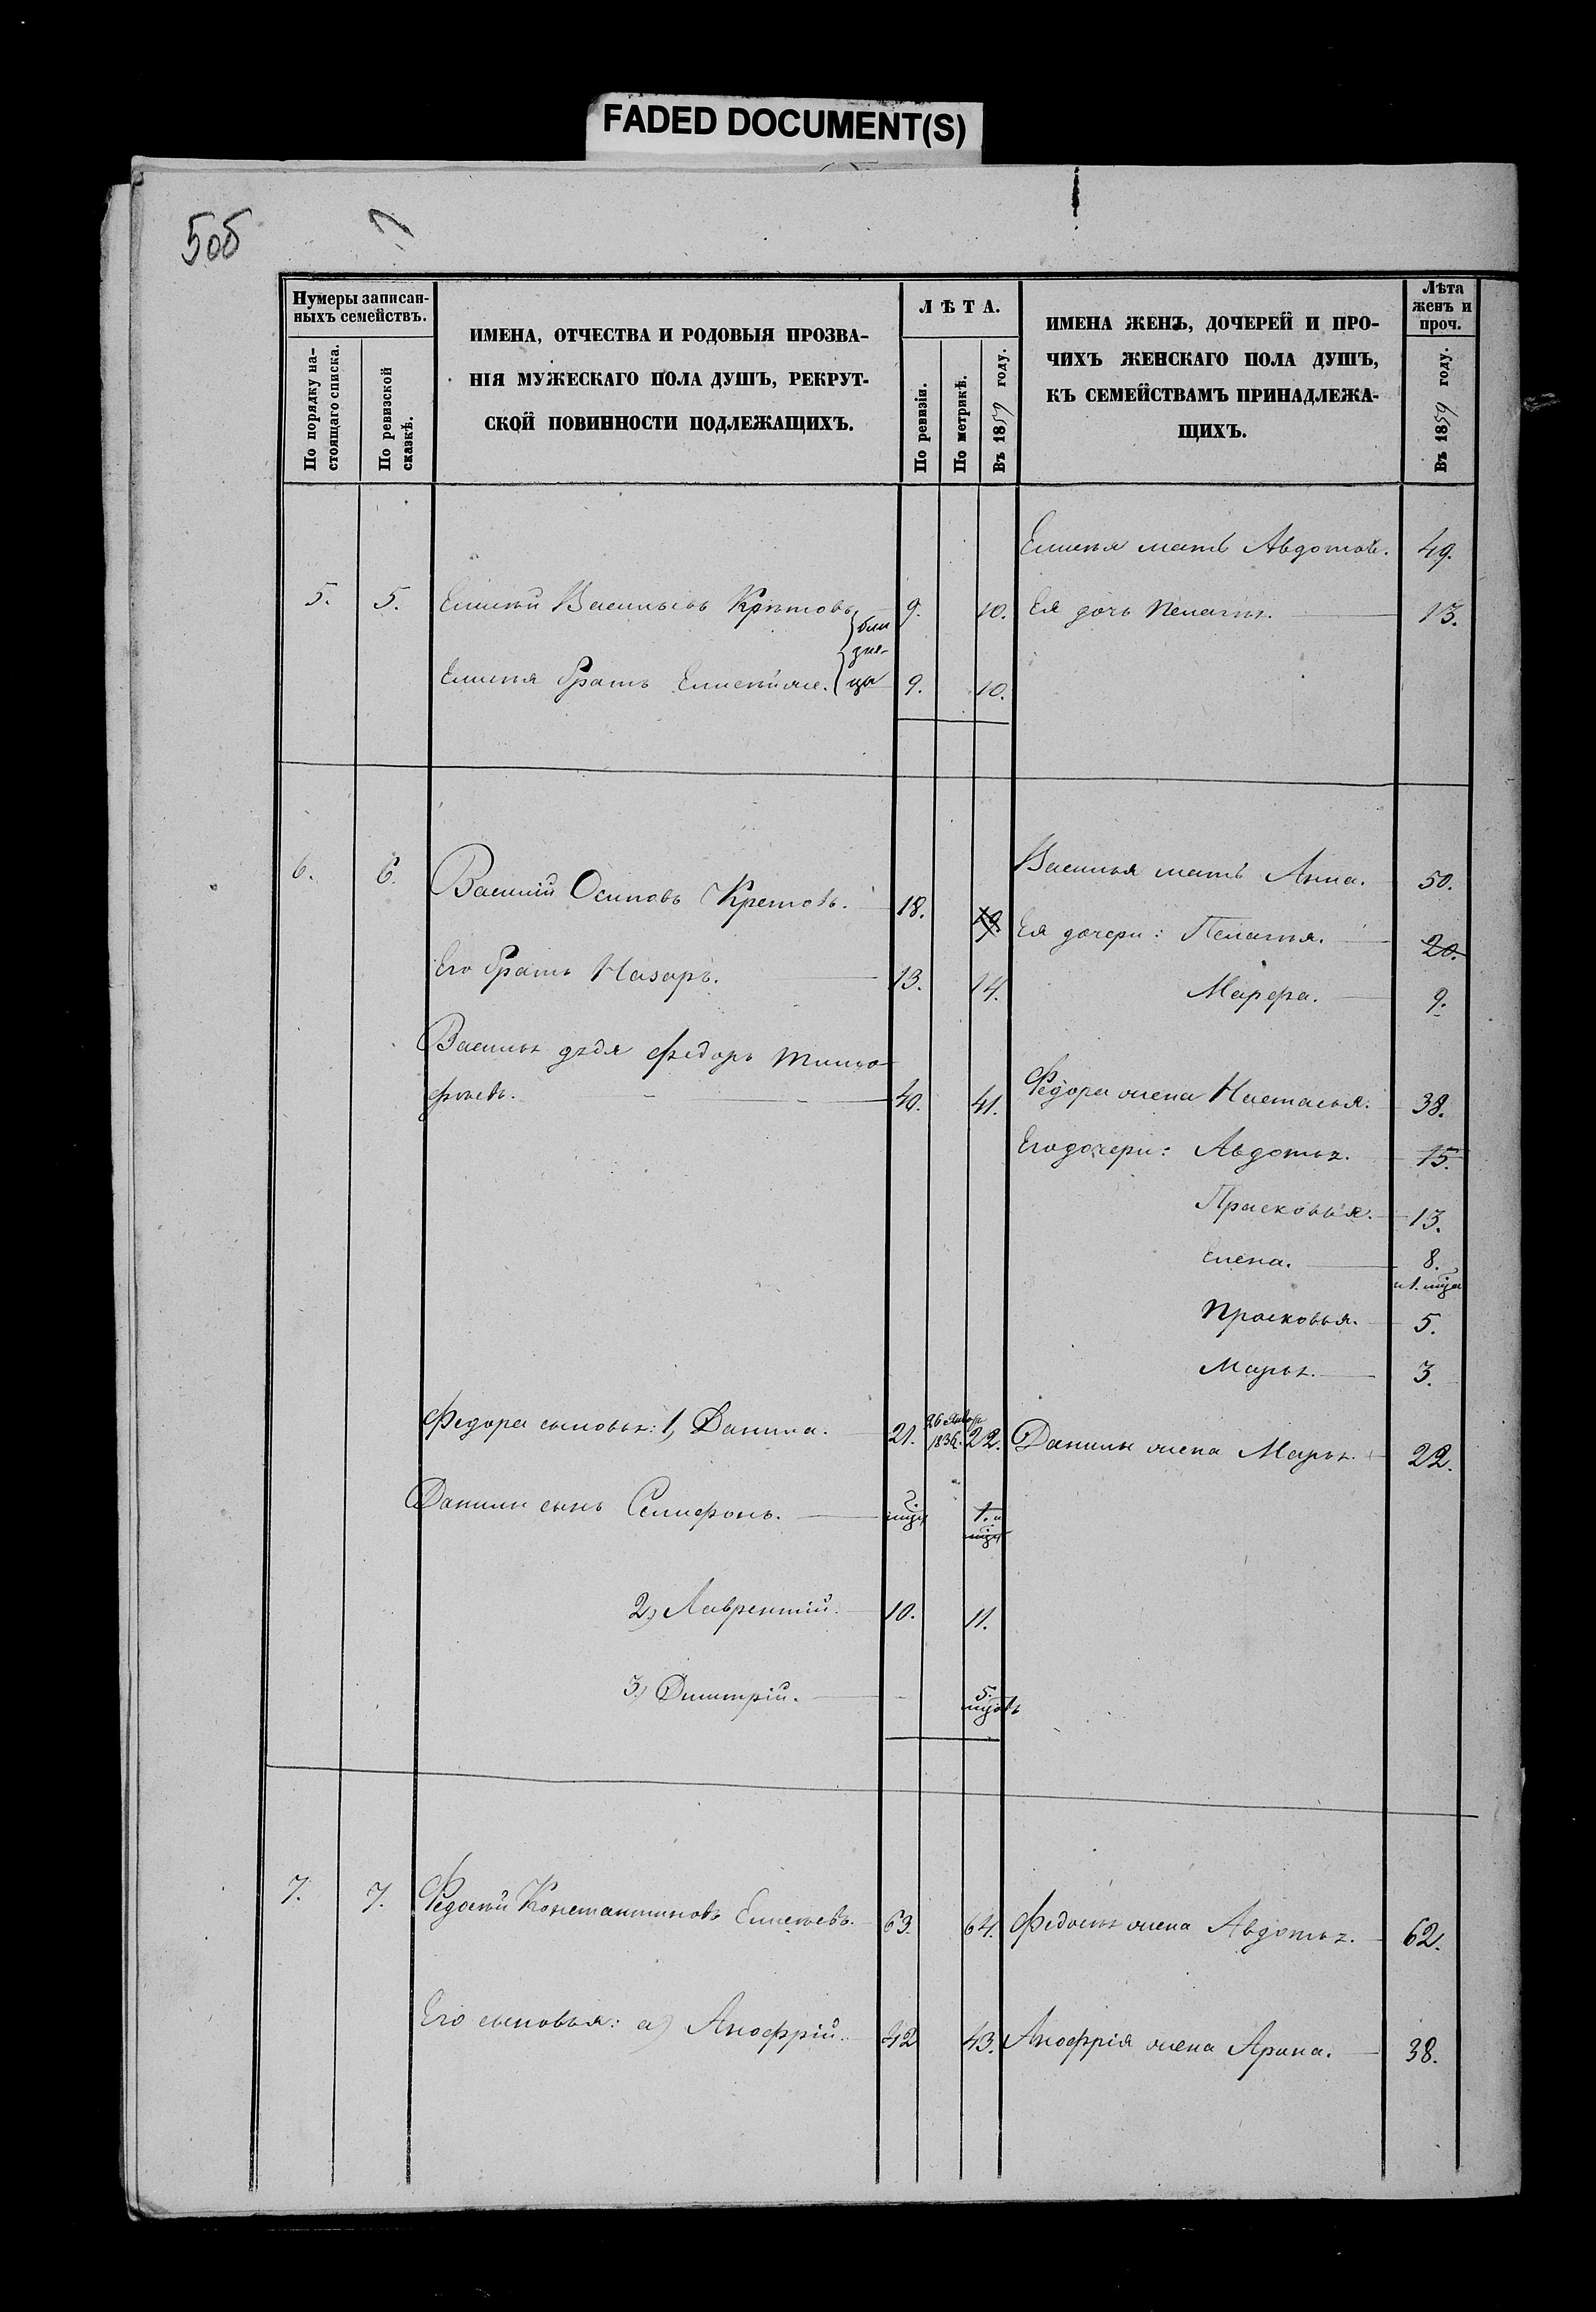 FADED DOCUMENT(S)
505
Нумеры записан-
ныхъ семействъ.
По порядку на-
стоящаго списка.
По ревизской
сказкѣ.
ИМЕНА, ОТЧЕСТВА И РОДОВЫЯ ПРОЗВА-
НІЯ МУЖЕСКАГО ПОЛА ДУШЪ, РЕКРУТ-
СКОЙ ПОВИННОСТИ ПОДЛЕЖАЩИХЪ.
ЛѢТА.
По ревизіи.
По метрикѣ.
Въ 1859 году.
ИМЕНА ЖЕНЪ, ДОЧЕРЕЙ И ПРО-
ЧИХЪ ЖЕНСКАГО ПОЛА ДУШЪ,
КЪ СЕМЕЙСТВАМЪ ПРИНАДЛЕЖА-
ЩИХЪ.
Лѣта
женъ и
проч.
Въ 1859 году.
мать Авдотья. 49.
5. 5. Васильевъ Кретовъ 9. 10. Ея дочь Пелагея. 13.
братъ 9. 10.
близне-
цы
6. 6. Василій Осиповъ Кретовъ. 18. 19. Василья мать Анна. 50.
Ея дочери: Пелагея. 20.
Его братъ Назаръ. 13. 14. Марфа. 9.
Василья дядя Федоръ Тимо-
фѣевъ. 40. 41. Федора жена Настасья. 38.
Его дочери: Авдотья. 15.
Прасковья. 13.
Елена. 8.
Прасковья. 5.
Марья. 3.
Федора сыновья: 1, Данила. 21. 26 Января 1836. 22. Данилы жена Марья. 22.
Данилы сынъ 1. и
2, Лаврентій. 10. 11.
3, Димитрій. 5.
7. 7. Федосѣй Константиновъ Елисѣевъ. 63. 64. Федосѣя жена Авдотья. 62.
Его сыновья: а) Анофрій. 42 43. Анофрія жена Арина. 38.